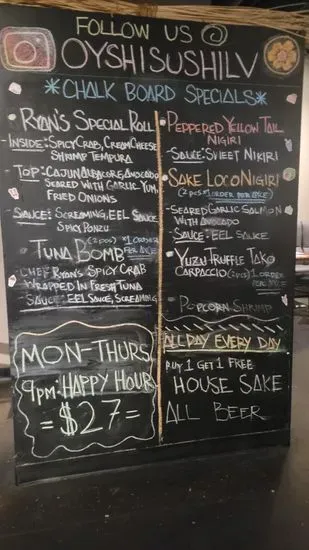 FOLLOW US @
OYSHISUSHILV
*CHALK BOARD SPECIALS*
• RYAN'S SPECIAL ROLL
INSIDE: SPICY CRAB, CREAM CHEESE
SHRIMP TEMPURA
TOP: CAJUN ALBACORE, AVOCADO,
SEARED WITH GARLIC YUM,
FRIED ONIONS
SAUCE: SCREAMING, EEL SAUCE
SPICY PONZU
• TUNA BOMB (2pcs) *1 ORDER
PER AYCE
CHEF RYAN'S SPICY CRAB
WRAPPED IN FRESH TUNA
SAUCE: EEL SAUCE, SCREAMING
MON-THURS
9pm-HAPPY HOUR
=$27=
• PEPPERED YELLOW TAIL
NIGIRI
-SAUCE: SWEET NIKIRI
• SAKE LOCO NIGIRI
(2pcs) *1 ORDER PER AYCE
-SEARED GARLIC SALMON
WITH AVOCADO
-SAUCE: EEL SAUCE
• YUZU TRUFFLE TAKO
CARPACCIO (2pcs) 1 ORDER
PER AYCE
• POPCORN SHRIMP
ALL DAY EVERY DAY
BUY 1 GET 1 FREE
HOUSE SAKE
ALL BEER